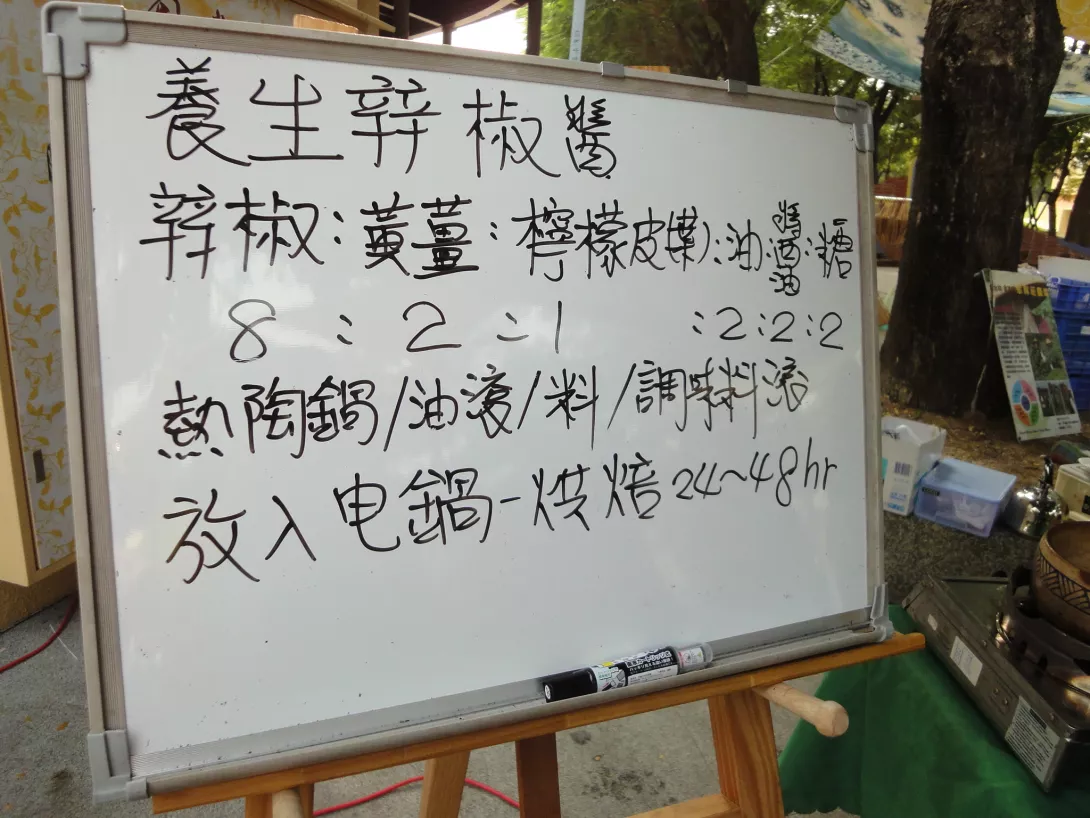 養生辛椒醬
辛椒:黃薑:檸檬皮(葉):油:醬油:糖
8:2:1:2:2:2
熱陶鍋/油滾/料/調味料滾
放入电鍋-烘焙24~48hr